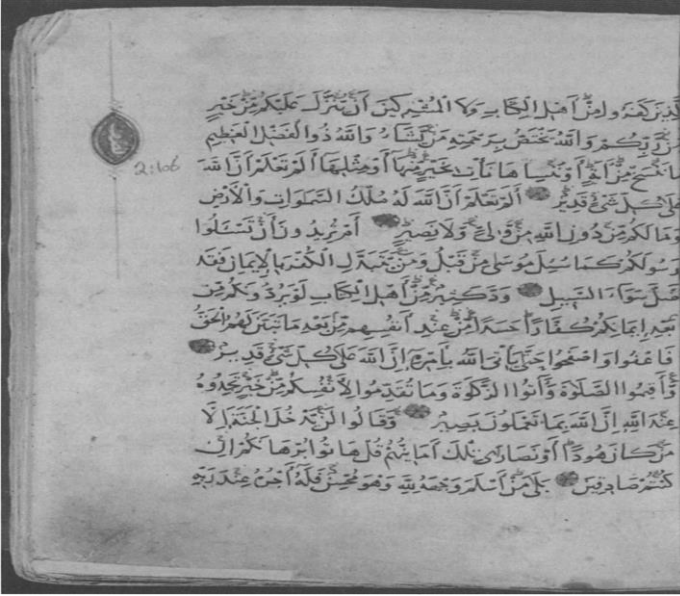 الَّذِينَ كَفَرُوا مِنْ أَهْلِ الْكِتَابِ وَلَا الْمُشْرِكِينَ أَنْ يُنَزَّلَ عَلَيْكُمْ مِنْ خَيْرٍ
مِنْ رَبِّكُمْ وَاللَّهُ يَخْتَصُّ بِرَحْمَتِهِ مَنْ يَشَاءُ وَاللَّهُ ذُو الْفَضْلِ الْعَظِيمِ
2:106
مَا نَنْسَخْ مِنْ آيَةٍ أَوْ نَنْسَاهَا نَأْتِ بِخَيْرٍ مِنْهَا أَوْ مِثْلِهَا أَلَمْ تَعْلَمْ أَنَّ اللَّهَ
عَلَى كُلِّ شَيْءٍ قَدِيرٌ أَلَمْ تَعْلَمْ أَنَّ اللَّهَ لَهُ مُلْكُ السَّمَوَاتِ وَالْأَرْضِ
وَمَا لَكُمْ مِنْ دُونِ اللَّهِ مِنْ وَلِيٍّ وَلَا نَصِيرٍ أَمْ تُرِيدُونَ أَنْ تَسْئَلُوا
رَسُولَكُمْ كَمَا سُئِلَ مُوسَى مِنْ قَبْلُ وَمَنْ يَتَبَدَّلِ الْكُفْرَ بِالْإِيمَانِ فَقَدْ
ضَلَّ سَوَاءَ السَّبِيلِ وَدَّ كَثِيرٌ مِنْ أَهْلِ الْكِتَابِ لَوْ يَرُدُّونَكُمْ مِنْ
بَعْدِ إِيمَانِكُمْ كُفَّارًا حَسَدًا مِنْ عِنْدِ أَنْفُسِهِمْ مِنْ بَعْدِ مَا تَبَيَّنَ لَهُمُ الْحَقُّ
فَاعْفُوا وَاصْفَحُوا حَتَّى يَأْتِيَ اللَّهُ بِأَمْرِهِ إِنَّ اللَّهَ عَلَى كُلِّ شَيْءٍ قَدِيرٌ
وَأَقِيمُوا الصَّلَاةَ وَآتُوا الزَّكَوةَ وَمَا تُقَدِّمُوا لِأَنْفُسِكُمْ مِنْ خَيْرٍ تَجِدُوهُ
عِنْدَ اللَّهِ إِنَّ اللَّهَ بِمَا تَعْمَلُونَ بَصِيرٌ وَقَالُوا لَنْ يَدْخُلَ الْجَنَّةَ إِلَّا
مَنْ كَانَ هُودًا أَوْ نَصَارَى تِلْكَ أَمَانِيُّهُمْ قُلْ هَاتُوا بُرْهَانَكُمْ إِنْ
كُنْتُمْ صَادِقِينَ بَلَى مَنْ أَسْلَمَ وَجْهَهُ لِلَّهِ وَهُوَ مُحْسِنٌ فَلَهُ أَجْرُهُ عِنْدَ رَبِّهِ